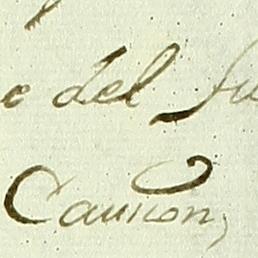 e del Ju
Caucion,